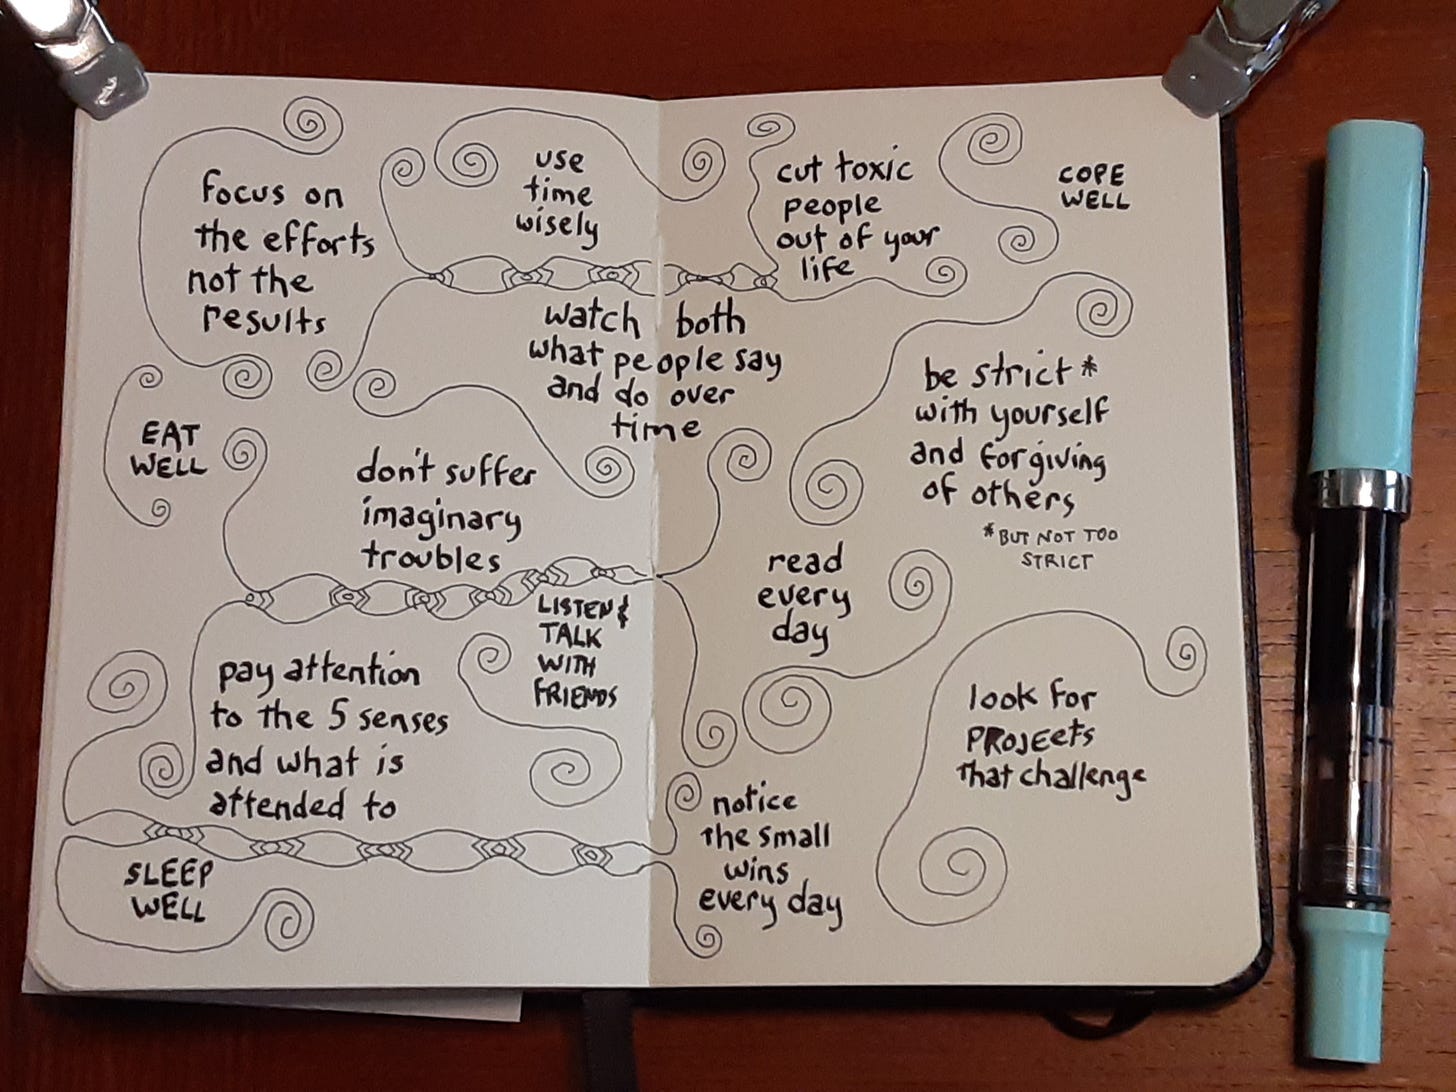 focus on
the efforts
not the
results
use
time
wisely
cut toxic
people
out of your
life
COPE
WELL
watch both
what people say
and do over
time
be strict*
with yourself
and forgiving
of others
*BUT NOT TOO
STRICT
EAT
WELL
don't suffer
imaginary
troubles
LISTEN &
TALK
WITH
FRIENDS
read
every
day
pay attention
to the 5 senses
and what is
attended to
look for
PROJECTS
that challenge
notice
the small
wins
every day
SLEEP
WELL